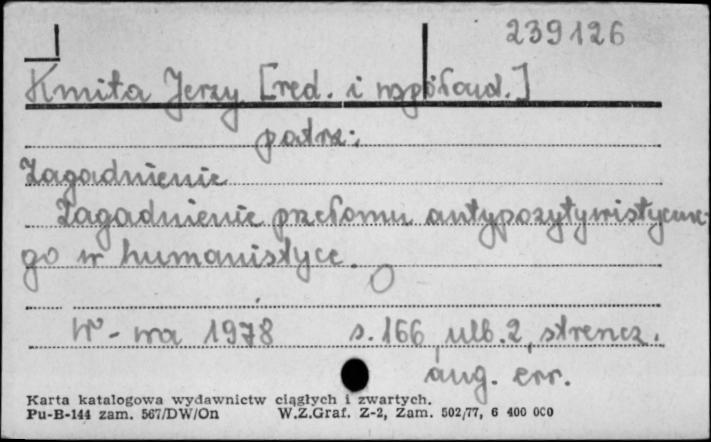 239126
Kmita Jerzy [red. i współaut.]
patrz:
Zagadnienie
Zagadnienie przełomu antypozytywistyczne-
go w humanistyce.
W-wa 1978 s. 166, nlb. 2, streszcz.
ang. err.
Karta katalogowa wydawnictw ciągłych i zwartych.
Pu-B-144 zam. 567/DW/On W.Z.Graf. Z-2, Zam. 502/77, 6 400 000